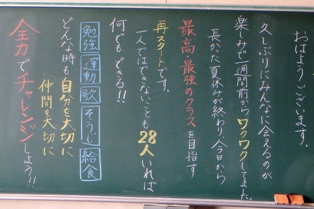 おはようございます。
久しぶりにみんなに会えるのが
楽しみで一週間前からワクワクしてました。
長かった夏休みが終わり、今日から
最高最強のクラスを目指す
再スタートです。
一人ではできないことも28人いれば
何でもできる!!
勉強 運動 歌 そうじ 給食
どんな時も自分を大切に
仲間を大切に
全力でチャレンジしよう!!